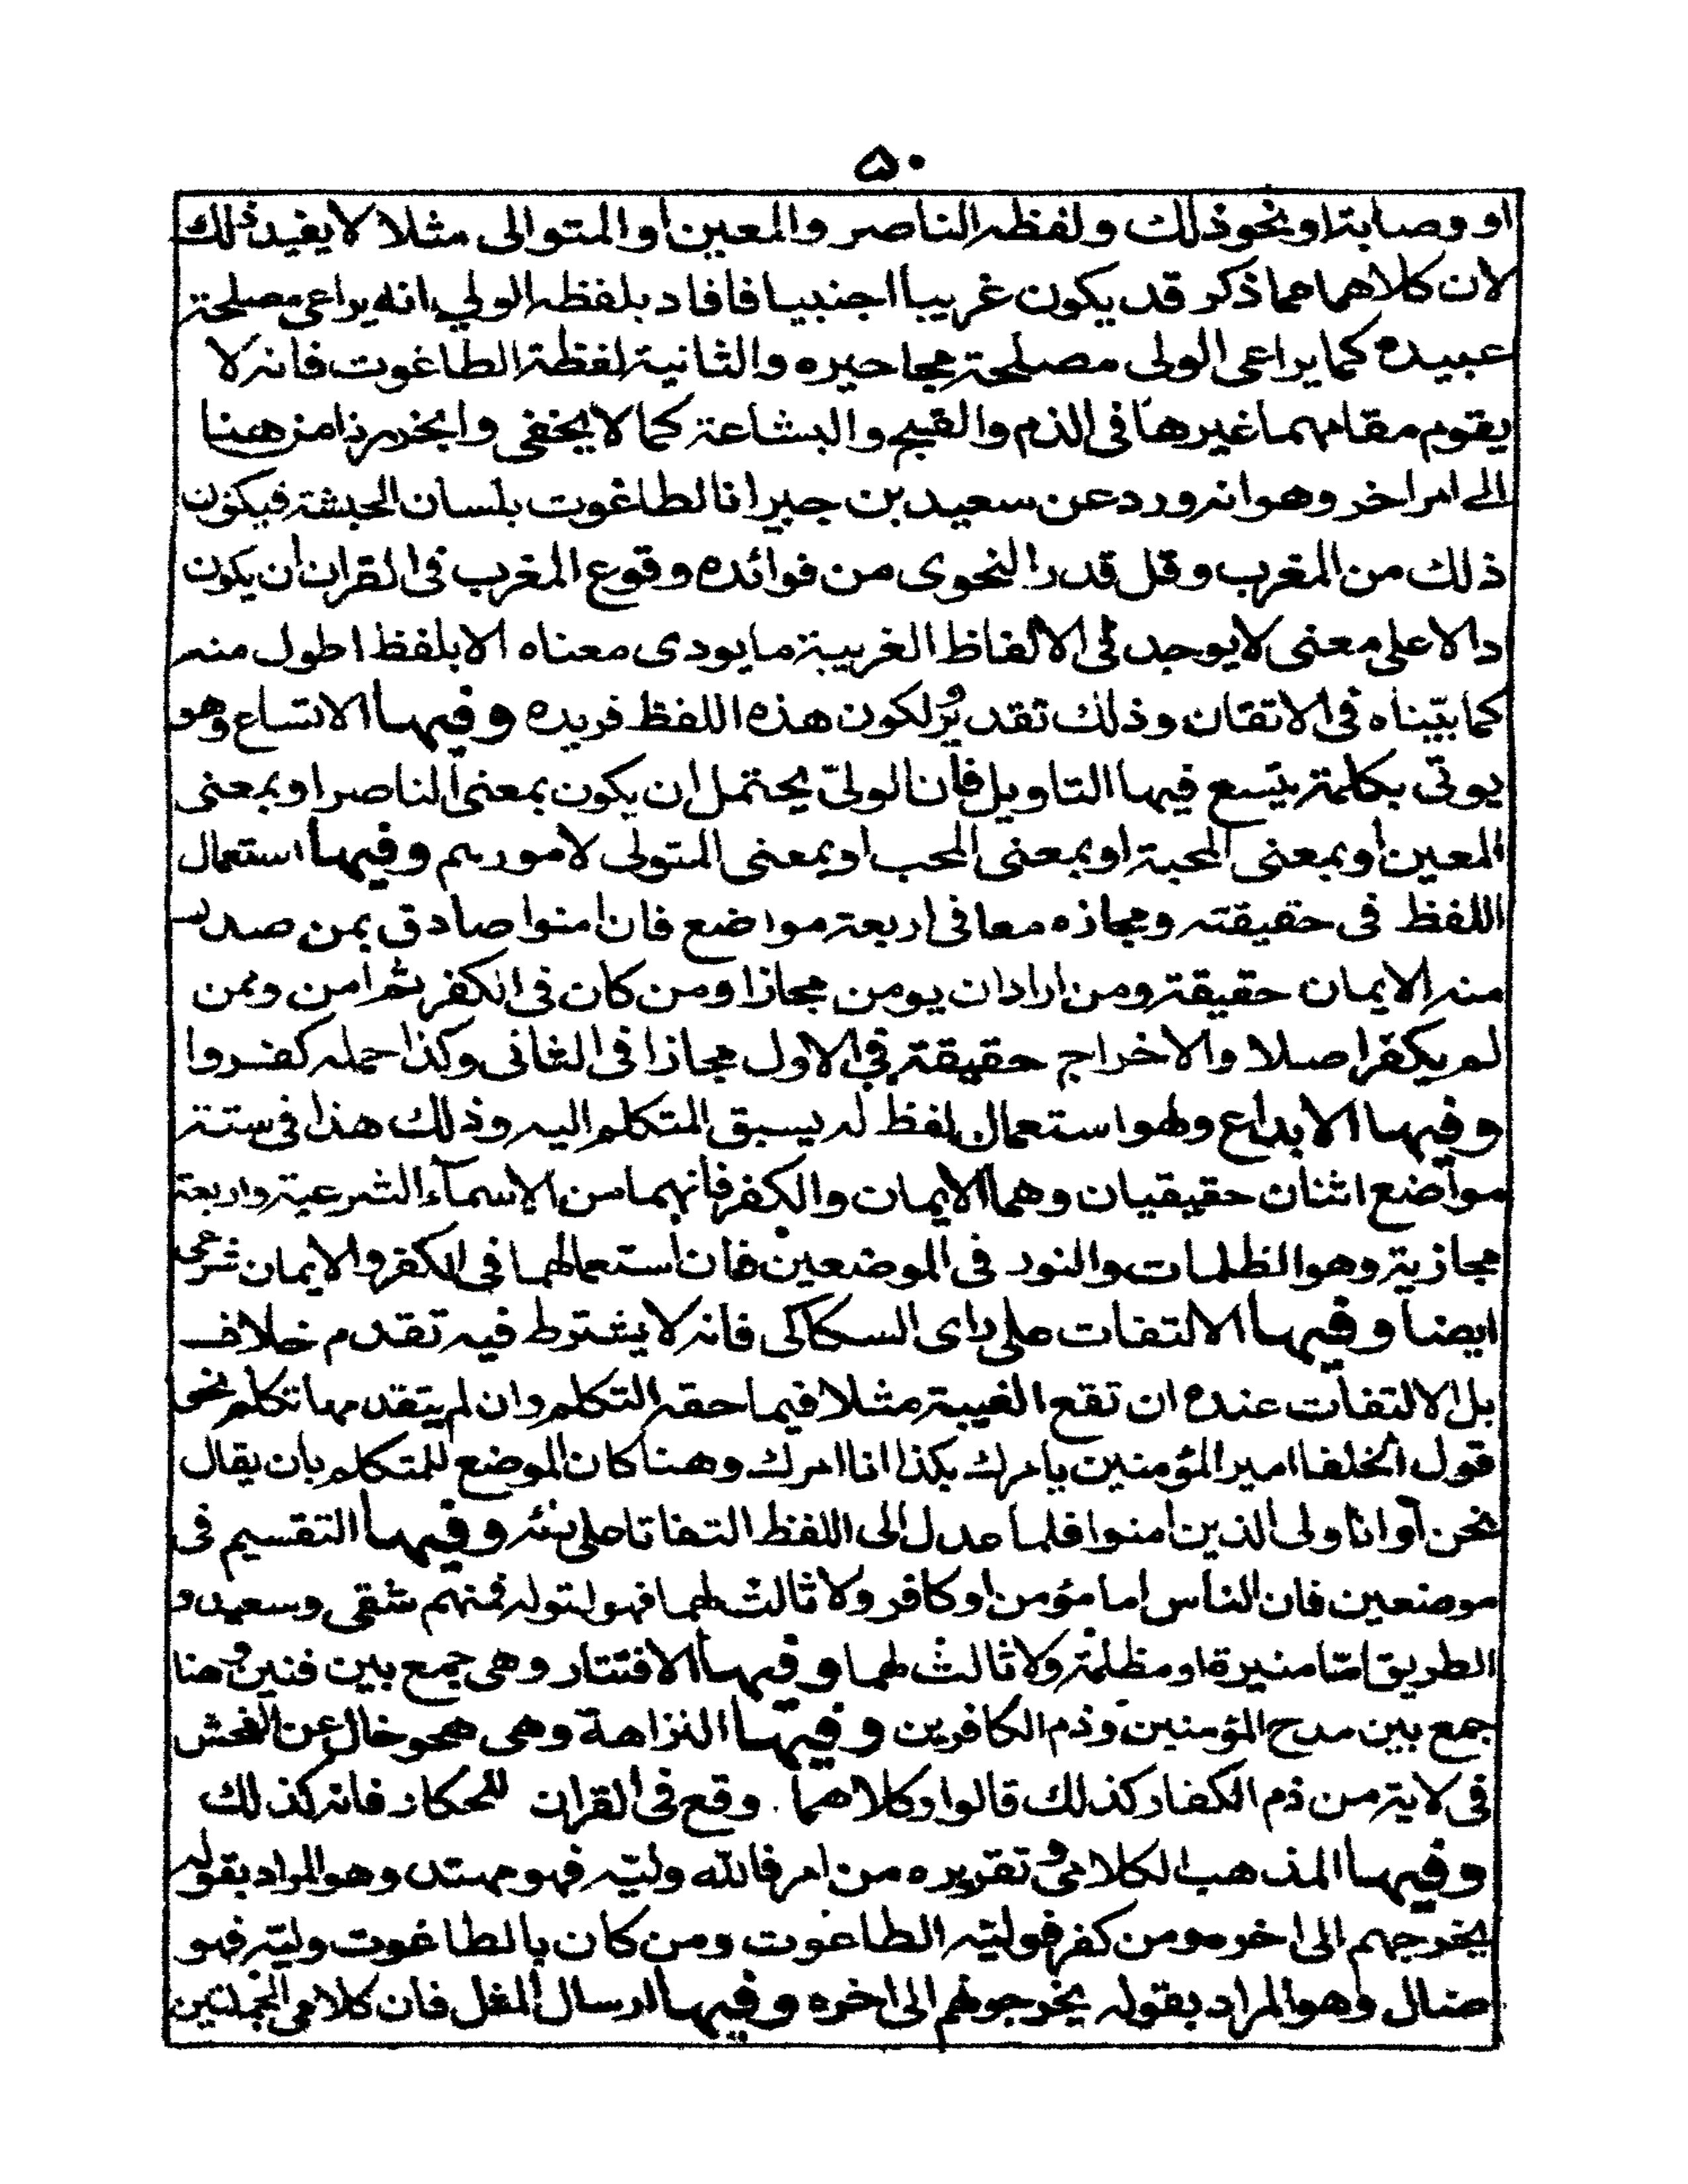 ۵۰
او وصابة او نحو ذلك ولفظه الناصر والمعين او المتوالى مثلا لا يفيد ذلك
لان كلاهما مما ذكر قد يكون غريبا اجنبيا فافاد بلفظه الولي انه يراعى مصلحة
عبيده كما يراعى الولى مصلحة مجاحيره والثانية لفظة الطاغوت فانه لا
يقوم مقامهما غيرها فى الذم والقبح والبشاعة كما لا يخفى وانجر بهذا من هنا
الى امر اخر وهو انه ورد عن سعيد بن جبير ان الطاغوت بلسان الحبشة فيكون
ذلك من المغرب وقل قدر النحوى من فوائده وقوع المغرب فى القران ان يكون
دالا على معنى لا يوجد فى الالفاظ الغريبة ما يودى معناه الا بلفظ اطول منه
كما بيّناه فى الاتقان وذلك تقدير لكون هذه اللفظ فريده وفيها الاتساع وهو
يوتى بكلمة يتسع فيها التاويل فان الولىّ يحتمل ان يكون بمعنى الناصر او بمعنى
المعين او بمعنى المحبة او بمعنى المحب او بمعنى المتولى لامورهم وفيها استعمال
اللفظ فى حقيقته ومجازه معا فى اربعة مواضع فان امنوا صادق بمن صدر
منه الايمان حقيقة ومن اراد ان يومن مجازا ومن كان فى الكفر ثم امن ومن
لم يكفر اصلا والاخراج حقيقة فى الاول مجازا فى الثانى وكذا جمله كفروا
وفيها الابداع وهو استعمال لفظ له يسبق المتكلم اليه وذلك هذا فى ستة
مواضع اثنان حقيقيان وهما الايمان والكفر فانهما من الاسمآء الشرعية واربعة
مجازية وهو الظلمات والنور فى الموضعين فان استعمالهما فى الكفر والايمان شرعى
ايضا وفيها الالتفات على راى السكاكى فانه لا يشترط فيه تقدم خلاف
بل الالتفات عنده ان تقع الغيبة مثلا فيما حقه التكلم وان لم يتقدمها تكلم نحو
قول الخلفا امير المؤمنين يامرك بكذا انا امرك وهنا كان الموضع للمتكلم بان يقال
نحن او انا ولى الذين امنوا فلما عدل الى اللفظ التفاتا على وفيها التقسيم فى
موضعين فان الناس اما مؤمن او كافر ولا ثالث لهما فهو لقوله فمنهم شقى وسعيد و
الطريق امّا منيرة او مظلمة ولا ثالث لهما وفيها الافتتار وهى جمع بين فنين وهنا
جمع بين مدح المؤمنين وذم الكافرين وفيها النزاهة وهى هجو خال عن الفحش
فى لاية من ذم الكفار كذلك قالوا وكلاهما وقع فى القران للحكار فانه كذلك
وفيها المذهب الكلامى وتقريره من امر فالله وليّه فهو مهتد وهو المراد بقوله
يخرجهم الى اخره ومن كفر فوليّه الطاغوت ومن كان بالطاغوت وليّه فهو
ضال وهو المراد بقوله يخرجونهم الى اخره وفيها ارسال المغل فان كلامى الجملتين